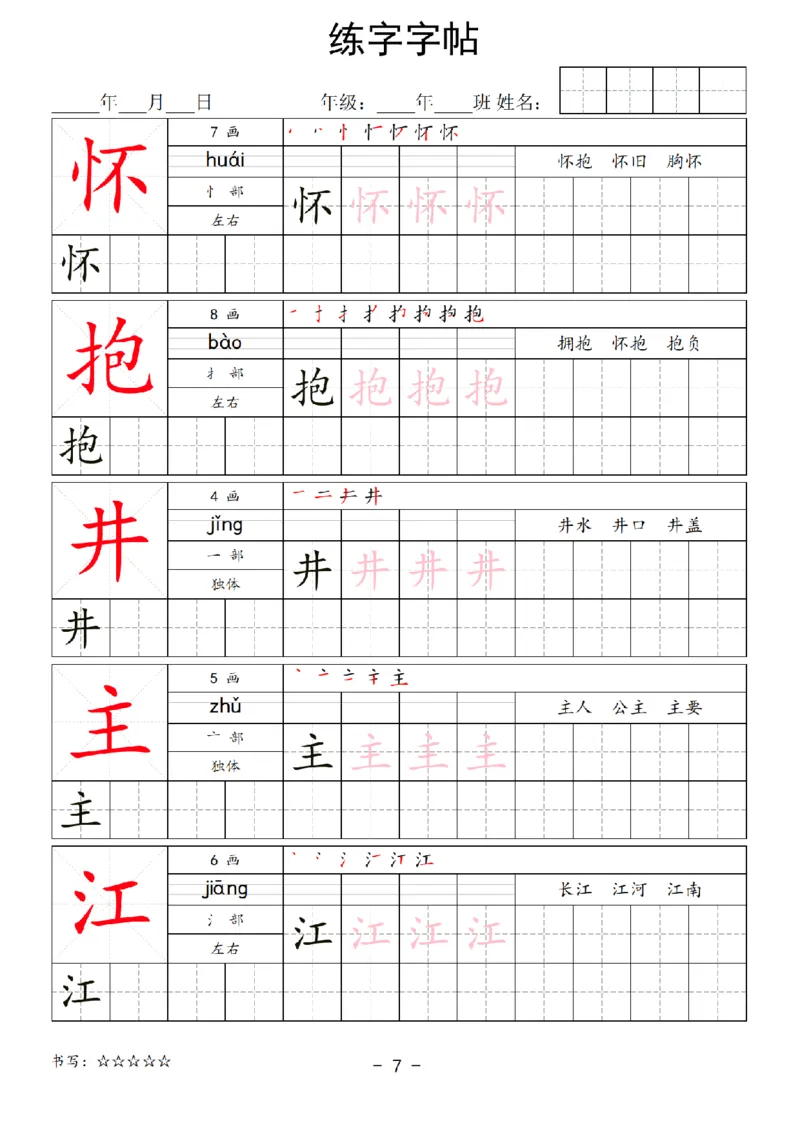 练字字帖
_____年___月___日 年级：____年____班 姓名：
怀 7 画
huái 怀抱 怀旧 胸怀
忄 部 怀 怀 怀 怀
左右
怀
抱 8 画
bào 拥抱 怀抱 抱负
扌 部 抱 抱 抱 抱
左右
抱
井 4 画
jǐng 井水 井口 井盖
一 部 井 井 井 井
独体
井
主 5 画
zhǔ 主人 公主 主要
亠 部 主 主 主 主
独体
主
江 6 画
jiāng 长江 江河 江南
氵 部 江 江 江 江
左右
江
书写：☆☆☆☆☆ - 7 -